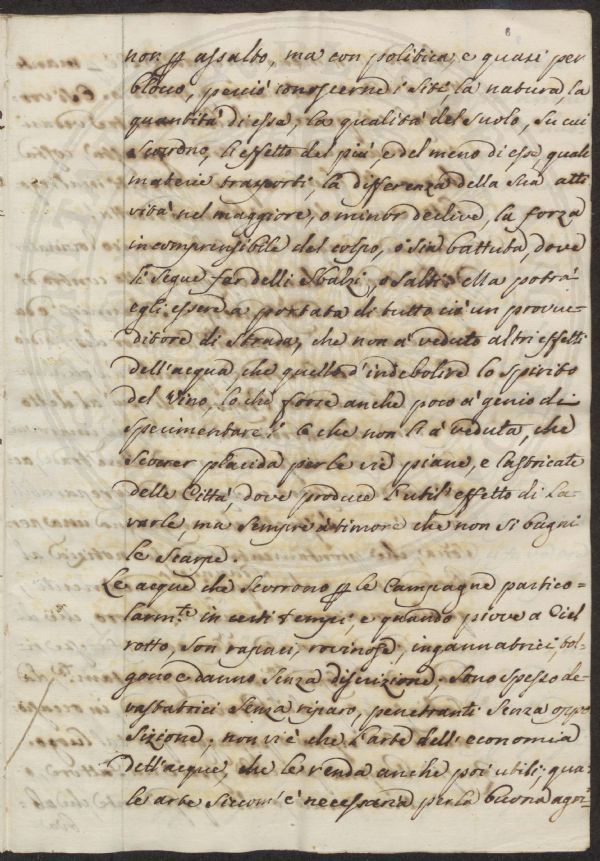 non p assalto, ma con politica, e quasi per
bloco, perciò conoscerne i siti la natura, la
quantità di esse, la qualità del suolo, su cui
scorrono, li effetti del più, e del meno di esse quali
materie trasporti, la differenza della sua atti
vità nel maggiore, o minor declive, la forza
incomprensibile del colpo, o sia battuta, dove
li segue far delli sbalzi, o salti: ella potrà
egli essere a portata di tutto ciò un provve-
ditore di strada, che non à veduto altri effetti
dell'acqua che quello d'indebolire lo spirito
del vino, lo che forse anche poco à genio di
sperimentare! e che non li à veduta, che
scorrer placida per le vie piane, e lastricate
delle Città, dove produce l'util effetto di la-
varle, ma sempre à timore che non si bagni
le scarpe.
Le acque che scorrono p le Campagne partico=
larm.te in certi tempi, e quando piove a Ciel
rotto, son rapaci, rovinose, ingannatrici, tol-
gono e danno senza discrizione; sono spesso de-
vastatrici senza riparo, penetranti senza oppo
sizione; non vi è che l'arte dell'economia
dell'acque, che le renda anche poi utili; qua-
le arte siccom'è necessaria per la buona agri=